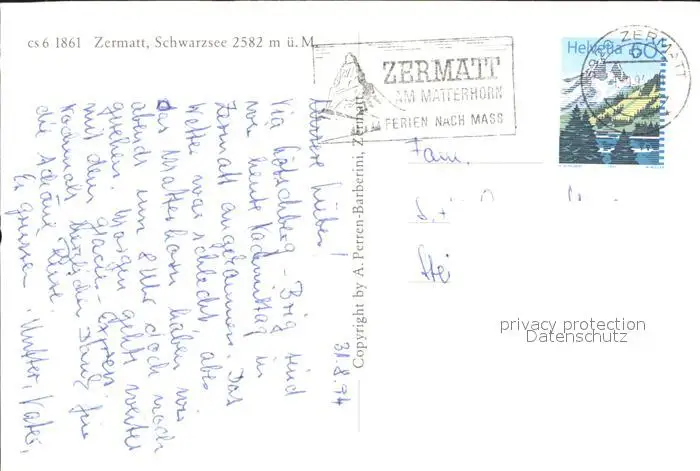 cs 6 1861 Zermatt, Schwarzsee 2582 m ü. M.
ZERMATT
AM MATTERHORN
FERIEN NACH MASS
ZERMATT
Helvetia 60
Copyright by A. Perren-Barberini, Zermatt
31.8.94
Unsere Lieben!
Via Lötschberg - Brig sind
wir heute Nachmittag in
Zermatt angekommen. Das
Wetter war schlecht, aber
das Matterhorn haben wir
abends um 8 Uhr doch noch
gesehen. Morgen geht's weiter
mit dem Glacier-Express.
Nochmals herzlichen Dank für
die schöne Reise.
Es grüssen Mutter, Vater,
Fam.
privacy protection
Datenschutz